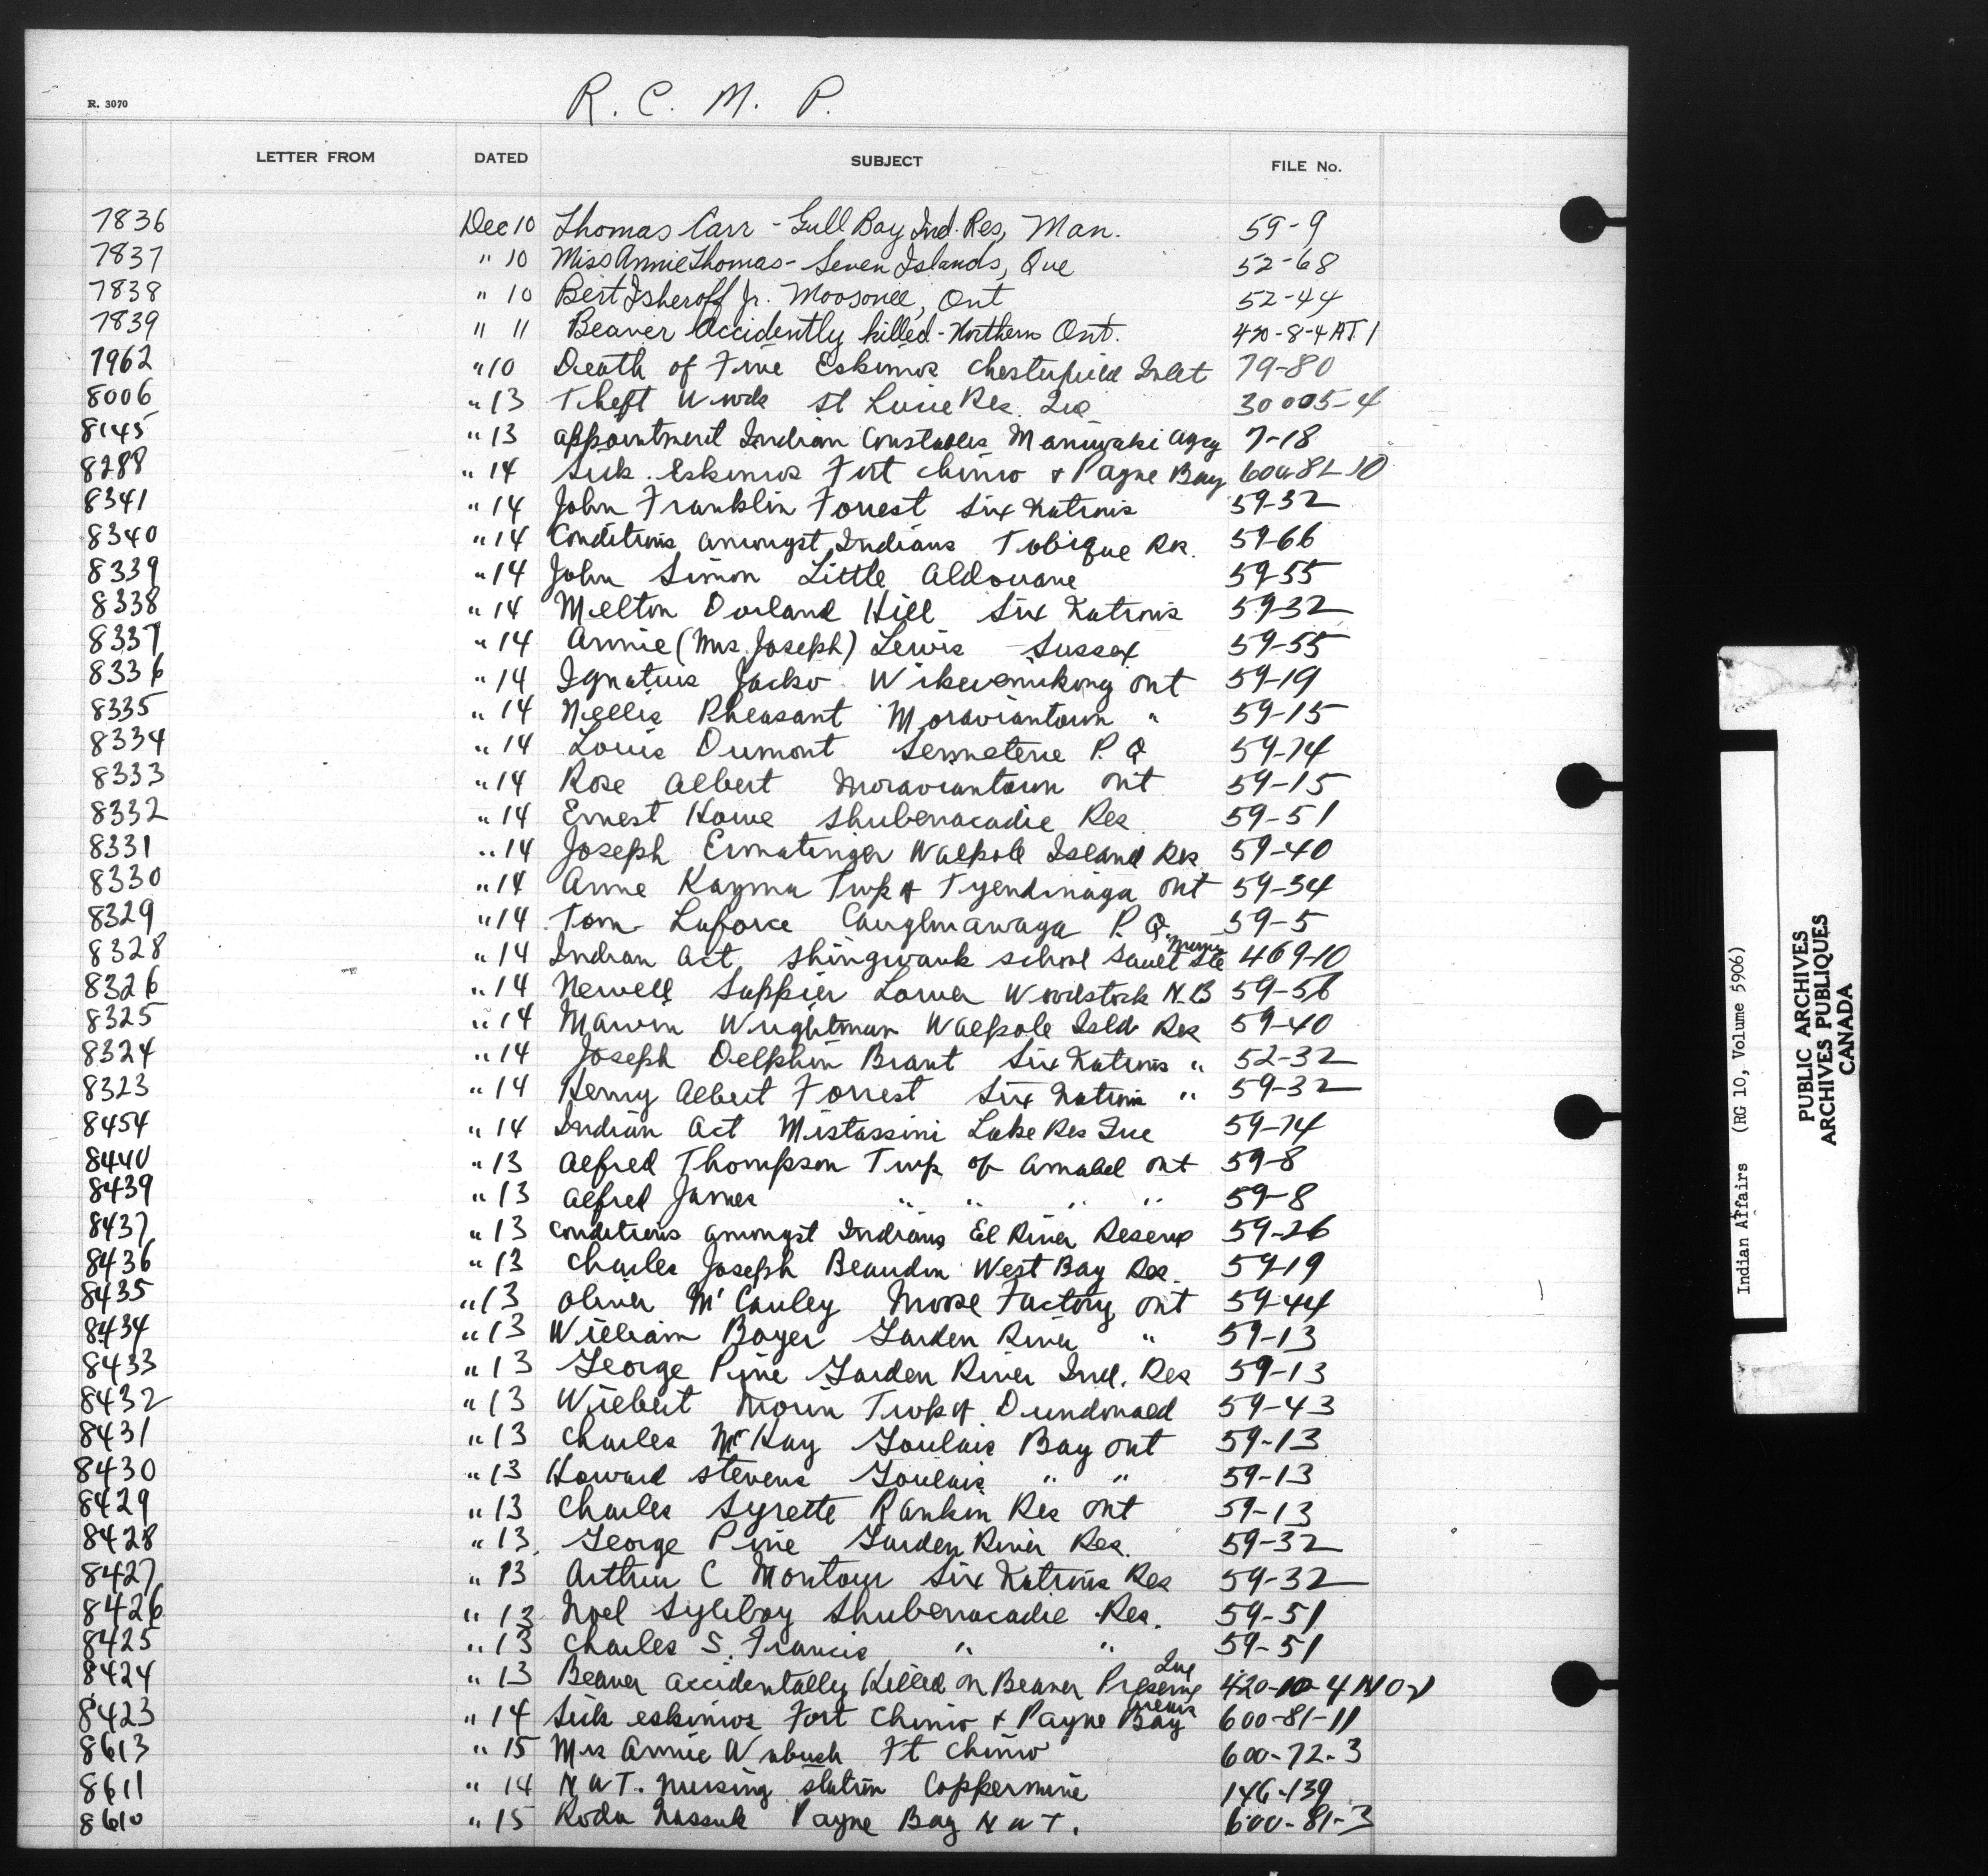 R. 3070
R. C. M. P.
LETTER FROM DATED SUBJECT FILE No.
7836 Dec 10 Thomas Carr - Gull Bay Ind. Res, Man. 59-9
7837 " 10 Miss Annie Thomas - Seven Islands, Que 52-68
7838 " 10 Bert Isheroff Jr. Moosonee, Ont 52-44
7839 " 11 Beaver Accidently killed - Northern Ont. 420-8-4 AT. 1
7962 " 10 Death of Five Eskimos Chesterfield Inlet 79-80
8006 " 13 Theft Wood St Res. Que 30005-4
8145 " 13 appointment Indian Constables Maniwaki Agcy 7-18
8288 " 14 Sick Eskimos Fort Chimo & Payne Bay 600-81-10
8341 " 14 John Franklin Forrest Six Nations 59-32
8340 " 14 Conditions amongst Indians Tobique Res. 59-66
8339 " 14 John Simon Little Aldouane 59-55
8338 " 14 Melton Dorland Hill Six Nations 59-32
8337 " 14 Annie (Mrs. Joseph) Lewis Sussex 59-55
8336 " 14 Ignatius Jacko Wikwemikong Ont 59-19
8335 " 14 Nellis Pheasant Moraviantown " 59-15
8334 " 14 Louis Dumont Senneterre P. Q 59-74
8333 " 14 Rose Albert Moraviantown Ont 59-15
8332 " 14 Ernest Howe Shubenacadie Res 59-51
8331 " 14 Joseph Ermatinger Walpole Island Res 59-40
8330 " 14 Anne Kagma Twp of Tyendinaga Ont 59-34
8329 " 14 Tom Laforce Caughnawaga P. Q. 59-5
8328 " 14 Indian Act Shingwauk school Sault Ste Marie 469-10
8326 " 14 Newell Suppier Lower Woodstock N.B 59-56
8325 " 14 Marvin Wrightman Walpole Isld Res 59-40
8324 " 14 Joseph Delphin Brant Six Nations " 52-32
8323 " 14 Henry Albert Forrest Six Nations " 59-32
8454 " 14 Indian Act Mistassini Lake Res Que 59-74
8440 " 13 Alfred Thompson Twp of Amabel Ont 59-8
8439 " 13 Alfred James " " " " 59-8
8437 " 13 Conditions amongst Indians Eel River Reserve 59-26
8436 " 13 Charles Joseph Beaudin West Bay Res. 59-19
8435 " 13 Oliver McCauley Moose Factory Ont 59-44
8434 " 13 William Boyer Garden River " 59-13
8433 " 13 George Pine Garden River Ind. Res 59-13
8432 " 13 Wilbert Morin Twp of Dundonald 59-43
8431 " 13 Charles McKay Goulais Bay Ont 59-13
8430 " 13 Howard Stevens Goulais " " 59-13
8429 " 13 Charles Syrette Rankin Res Ont 59-13
8428 " 13 George Pine Garden River Res. 59-32
8427 " 13 Arthur C Montour Six Nations Res 59-32
8426 " 13 Noel Syliboy Shubenacadie Res. 59-51
8425 " 13 Charles S. Francis " " 59-51
8424 " 13 Beaver accidentally Killed on Beaver Preserve Que 420-10-4
8423 " 14 Sick eskimos Fort Chimo & Payne Bay 600-81-11
8613 " 15 Mrs Annie Wabush Ft Chimo 600-72-3
8611 " 14 N W T. nursing station Coppermine 146-139
8610 " 15 Roda Nassuk Payne Bay N W T. 600-81-3
Indian Affairs (RG 10, Volume 5906)
PUBLIC ARCHIVES
ARCHIVES PUBLIQUES
CANADA